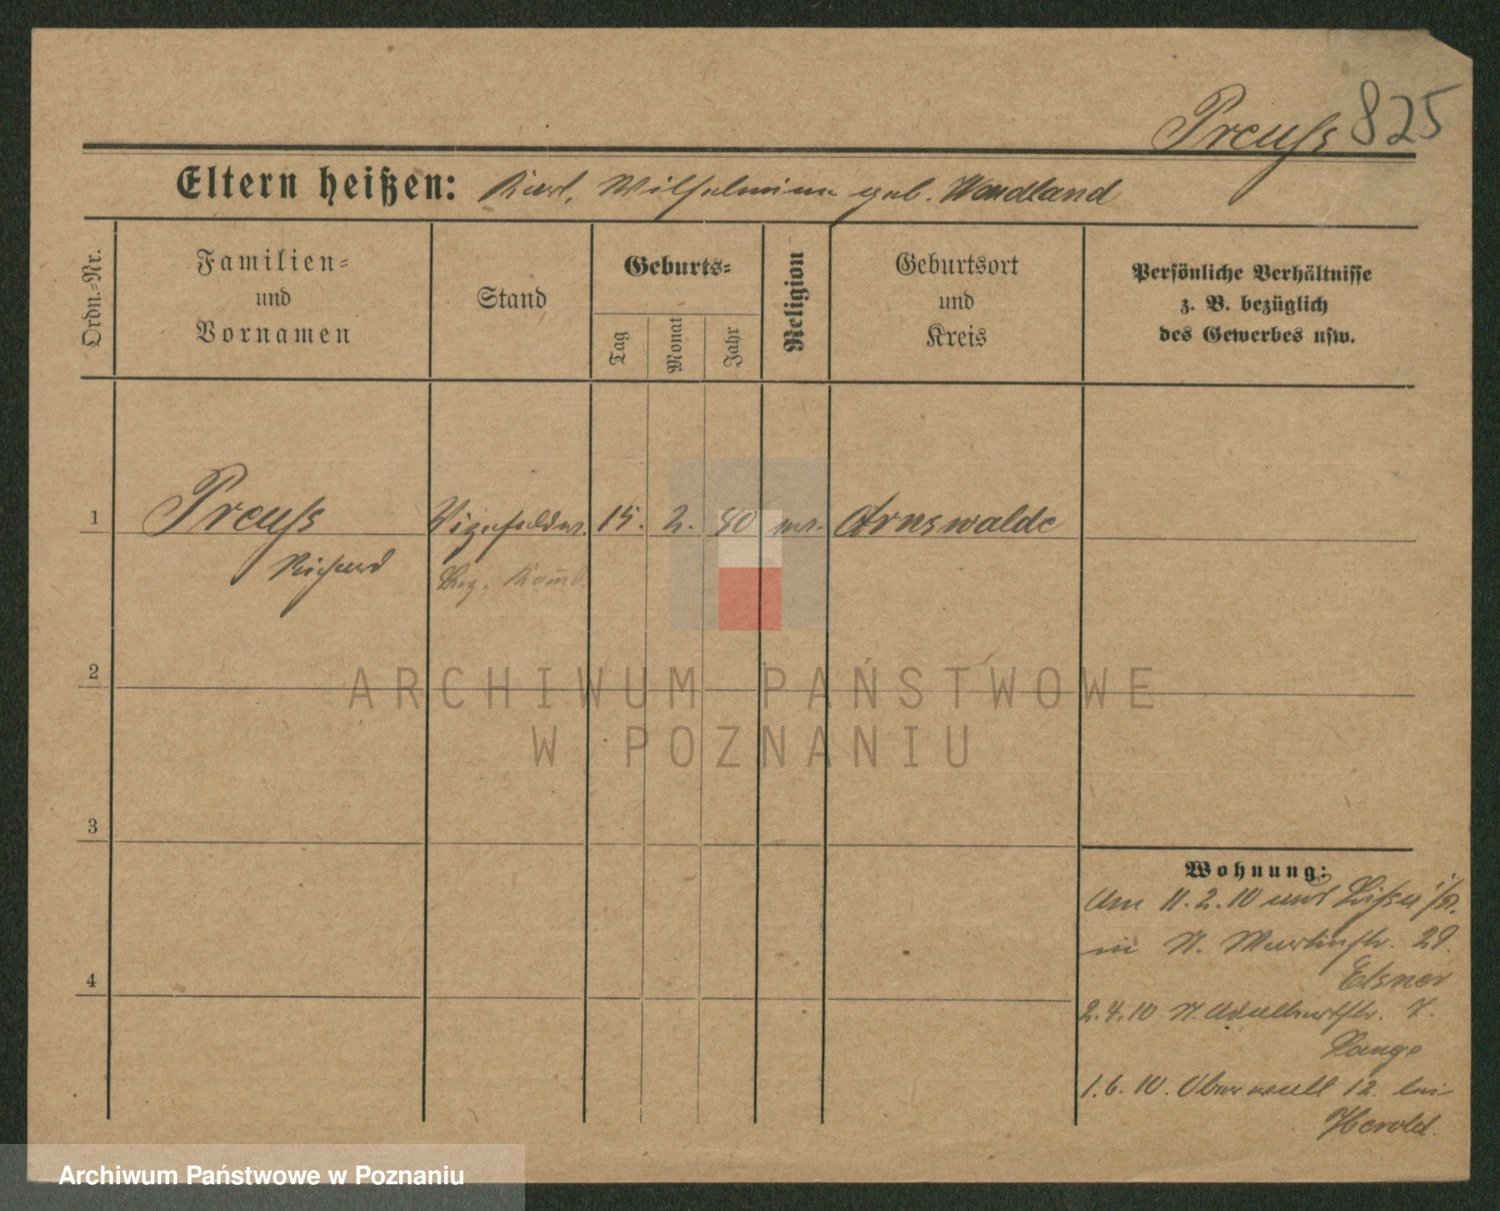 Preuß 825
Eltern heißen: Karl, Wilhelmine geb. Wendland
Ordn.-Nr.
Familien-
und
Vornamen
Stand
Geburts-
Tag
Monat
Jahr
Religion
Geburtsort
und
Kreis
Persönliche Verhältnisse
z. B. bezüglich
des Gewerbes usw.
1 Preuß Vizefeldw. 15. 2. 80 Arnswalde
Richard
Bez. Komd.
2
3
4
Wohnung:
Am 11.2.10 aus
in St. Martinstr. 28.
Elsner
2.4.10 St. Adalbertstr. 7.
Lange
1.6.10. Oberwall 12. bei
Herold.
ARCHIWUM PAŃSTWOWE
W POZNANIU
Archiwum Państwowe w Poznaniu